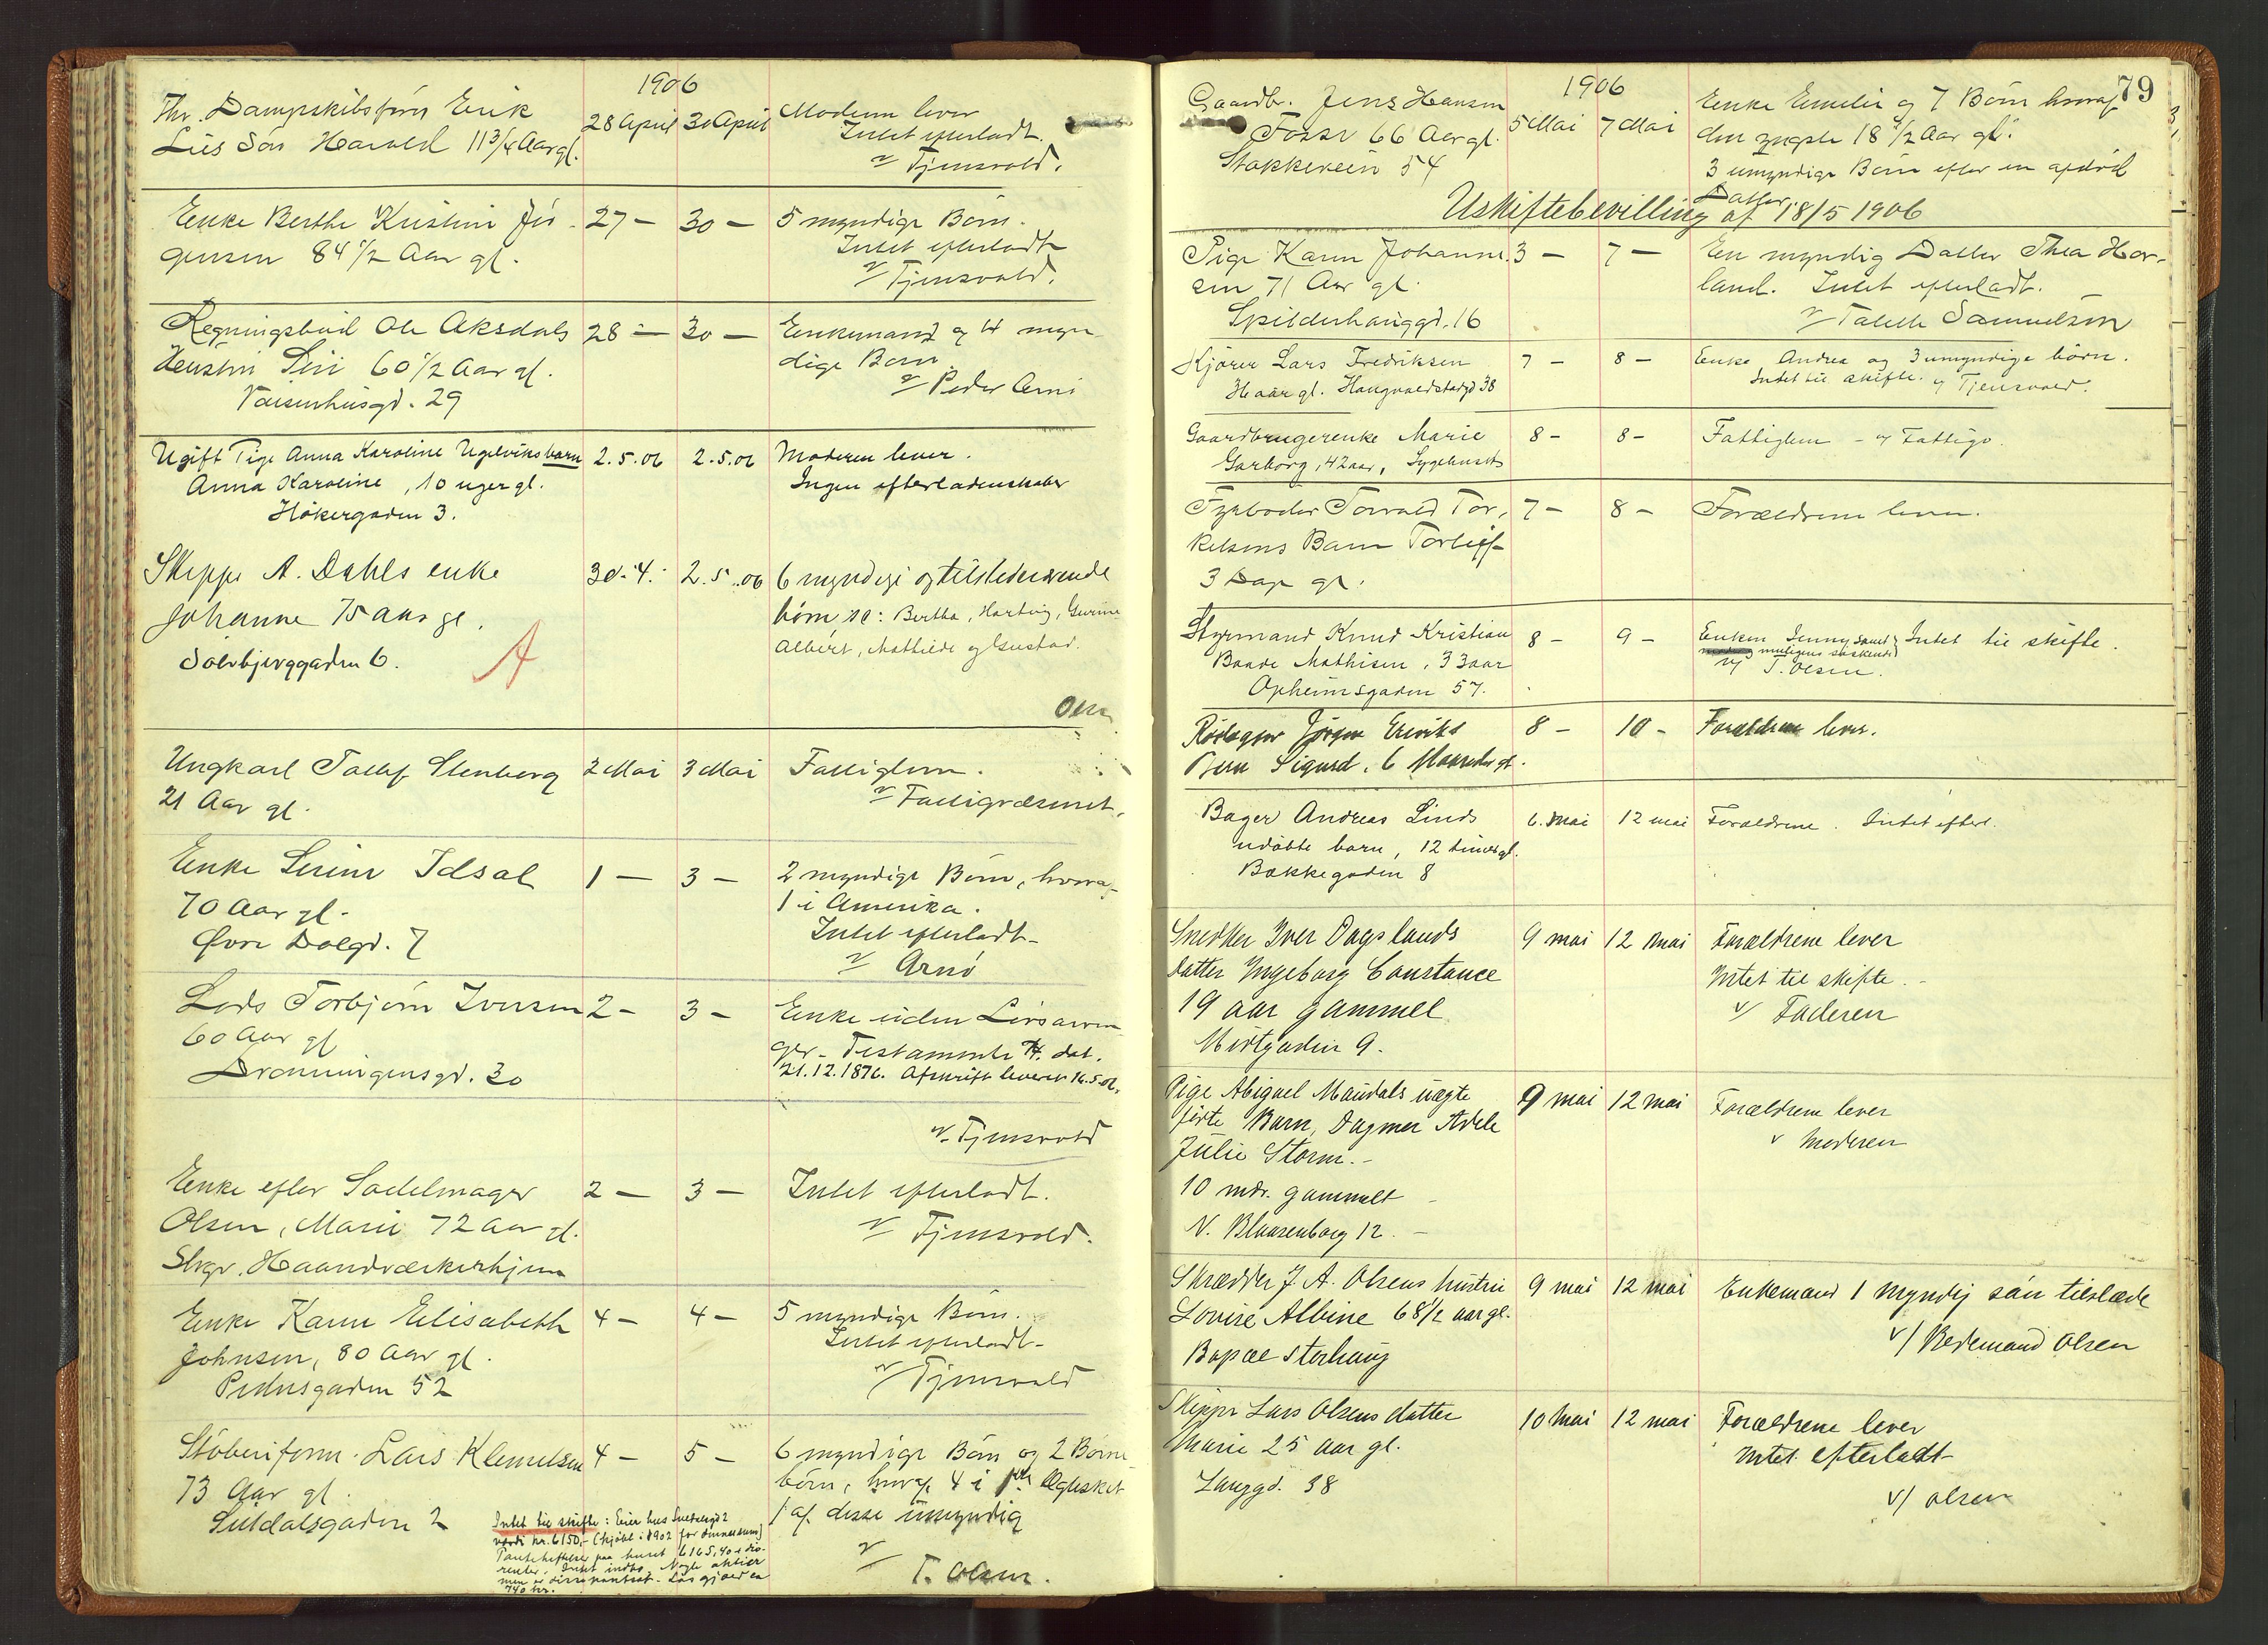 1906
Fhv. Dampskibsfører Erik
Lies Søn Harald 11 3/4 Aar gl.
28 April 30 April
Moderen lever
Intet efterladt.
v/ Tjensvold.
Enke Berthe Kristine Jör-
gensen 84 1/2 Aar gl.
27 — 30 —
5 myndige Børn.
Intet efterladt
v/ Tjensvold.
Regningsbud Ole Aksdals
Hustru Siri 60 1/2 Aar gl.
Vaisenhusgd. 29
28 — 30 —
Enkemand og 4 myn-
dige Børn
v/ Peder Arnö
Ugift Pige Anna Karoline Ugelviks barn
Anna Karoline, 10 uger gl.
Høkergaden 3.
2.5.06 2.5.06
Moderen lever.
Ingen efterladenskaber
Skipper A. Dahls enke
Johanne 75 aar gl.
Solvbjerggaden 6.
A
30.4. 2.5.06
6 myndige og tilstedeværende
børn se: Bertha, Hartvig, Gurine
Albert, Mathilde og Gustav.
Olsen
Ungkarl Tollef Stenberg
21 Aar gl.
2 Mai 3 Mai
Fattiglem.
v/ Fattigvæsenet.
Enke Serine Idsal
70 Aar gl.
Øvre Dalgd. 7
1 — 3 —
2 myndige Børn, hvoraf
1 i Amerika.
Intet efterladt
v/ Arnö
Lods Torbjørn Iversen
60 Aar gl
Dronningensgd. 30
2 — 3 —
Enke uden Livsarvin
ger - Testamente dat.
21.12.1876. Afskrift leveret 16.5.06.
v. Tjensvold
Enke efter Sadelmager
Olsen, Marie 72 Aar gl.
Stvgr. Haandværkerhjem
2 — 3 —
Intet efterladt.
v/ Tjensvold.
Enke Karen Elisabeth
Johnsen, 80 Aar gl.
Pedersgaden 52
4 — 4 —
5 myndige Børn.
Intet efterladt
v/ Tjensvold
Støberiform. Lars Klemetsen
73 Aar gl.
Suldalsgaden 2
4 — 5 —
6 myndige Børn og 2 Børne
børn, hvoraf 4 i 1ste Ægteskab
1 af disse umyndig
v/
T. Olsen.
Intet til skifte: Eier hus Suldalsgd 2
værdi kr. 6150,- (kjøbt i 1902 for denne sum)
Panteheftelser paa huset 6165,40 + div.
renter. Intet indbo. Nogle aktier
men disse pantsat. Løs gjæld ca
740 kr.
79
1906
Gaardbr. Jens Hansen
Fosse 66 Aar gl.
Stokkeveien 54
5 Mai 7 Mai
Enke Emelie og 7 Børn hvoraf
den yngste 18 1/2 Aar gl.
3 umyndige Børn efter en afdød
Datter.
Uskiftebevilling af 18/5 1906
Pige Karen Johanne.
sen 71 Aar gl.
Spilderhauggd. 16
3 — 7 —
En myndig Datter Thea Hor-
land. Intet efterladt.
v/ Tabelle Samuelsen
Kjører Lars Fredriksen
34 aar gl. Haugvaldstadgd 38
7 — 8 —
Enke Andrea og 3 umyndige børn.
Intet til skifte. v/ Tjensvold.
Gaardbrugerenke Marie
Garborg, 42 aar, Sygehuset
8 — 8 —
Fattiglem - v/ Fattigv.
Typbøder Torvald Tor-
kelsens Barn Torleif
3 Dage gl.
7 — 8 —
Forældrene lever.
Styrmand Knud Kristian
Baade Mathisen, 33 aar
Opheimsgaden 57.
8 — 9 —
Enken Jenny samt
muligens søskende
Intet til skifte.
v/ T. Olsen.
Rørlægger Jørgen Eriviks
Barn Sigurd, 6 Maaneder gl.
8 — 10 —
Forældrene lever.
Bager Andreas Linds
udøbte barn, 12 timer gl.
Bakkegaden 8
6. mai 12 mai
Forældrene. Intet efterl.
Snedker Iver Dagslands
datter Ingeborg Constance
19 aar gammel
Midtgaden 9.
9 mai 12 mai
Forældrene lever
Intet til skifte.
v/ Faderen
Pige Abigael Maudals uægte
fødte Barn, Dagmar Adele
Julie Storm.-
10 mdr. gammelt
N. Blaasenborg 12.
9 mai 12 mai
Forældrene lever
v Moderen
Skrædder J. A. Olsens hustru
Lovise Albine 68 1/2 aar gl.
Bopæl Storhaug
9 mai 12 mai
Enkemand 1 myndig søn tilstæde
v/ Bedemand Olsen
Skipper Lars Olsens datter
Marie 25 aar gl.
Langgd. 38
10 mai 12 mai
Forældrene lever
intet efterladt
v/ Olsen